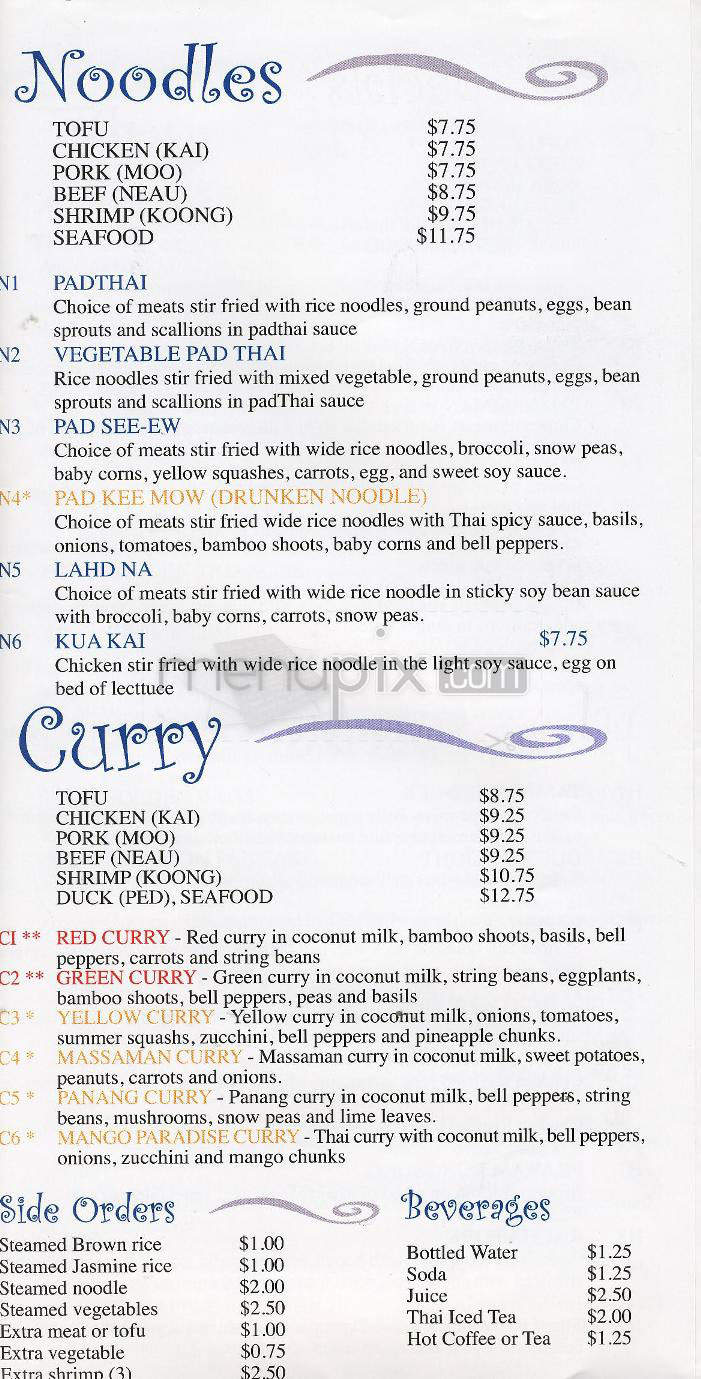 Noodles
TOFU $7.75
CHICKEN (KAI) $7.75
PORK (MOO) $7.75
BEEF (NEAU) $8.75
SHRIMP (KOONG) $9.75
SEAFOOD $11.75
N1 PADTHAI
Choice of meats stir fried with rice noodles, ground peanuts, eggs, bean
sprouts and scallions in padthai sauce
N2 VEGETABLE PAD THAI
Rice noodles stir fried with mixed vegetable, ground peanuts, eggs, bean
sprouts and scallions in padThai sauce
N3 PAD SEE-EW
Choice of meats stir fried with wide rice noodles, broccoli, snow peas,
baby corns, yellow squashes, carrots, egg, and sweet soy sauce.
N4* PAD KEE MOW (DRUNKEN NOODLE)
Choice of meats stir fried wide rice noodles with Thai spicy sauce, basils,
onions, tomatoes, bamboo shoots, baby corns and bell peppers.
N5 LAHD NA
Choice of meats stir fried with wide rice noodle in sticky soy bean sauce
with broccoli, baby corns, carrots, snow peas.
N6 KUA KAI $7.75
Chicken stir fried with wide rice noodle in the light soy sauce, egg on
bed of lecttuce
menupix.com
Curry
TOFU $8.75
CHICKEN (KAI) $9.25
PORK (MOO) $9.25
BEEF (NEAU) $9.25
SHRIMP (KOONG) $10.75
DUCK (PED), SEAFOOD $12.75
CI ** RED CURRY - Red curry in coconut milk, bamboo shoots, basils, bell
peppers, carrots and string beans
C2 ** GREEN CURRY - Green curry in coconut milk, string beans, eggplants,
bamboo shoots, bell peppers, peas and basils
C3 * YELLOW CURRY - Yellow curry in coconut milk, onions, tomatoes,
summer squashs, zucchini, bell peppers and pineapple chunks.
C4 * MASSAMAN CURRY - Massaman curry in coconut milk, sweet potatoes,
peanuts, carrots and onions.
C5 * PANANG CURRY - Panang curry in coconut milk, bell peppers, string
beans, mushrooms, snow peas and lime leaves.
C6 * MANGO PARADISE CURRY - Thai curry with coconut milk, bell peppers,
onions, zucchini and mango chunks
Side Orders
Steamed Brown rice $1.00
Steamed Jasmine rice $1.00
Steamed noodle $2.00
Steamed vegetables $2.50
Extra meat or tofu $1.00
Extra vegetable $0.75
Extra shrimp (3) $2.50
Beverages
Bottled Water $1.25
Soda $1.25
Juice $2.50
Thai Iced Tea $2.00
Hot Coffee or Tea $1.25